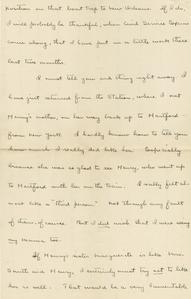 position on that boat trip to New Orleans. If I do,
I will probably be thankful, when Civil Service Exams
come along, that I have put in a little work these
last two months.
I must tell you one thing right away. I
have just returned from the Station, where I met
Harry's mother, on her way back up to Hartford
from New York. I hardly know how to tell you
how much I really did like her. Especially
because she was so glad to see Harry, who went up
to Hartford with her on the train. I really felt al-
most like a "third person". Not through any fault
of theirs, of course. But I did wish that I were seeing
my Momma too.
If Harry's sister Marguerite is like Mrs.
Smith and Harry, I certainly must try not to like
her so well. That would be a very lamentable